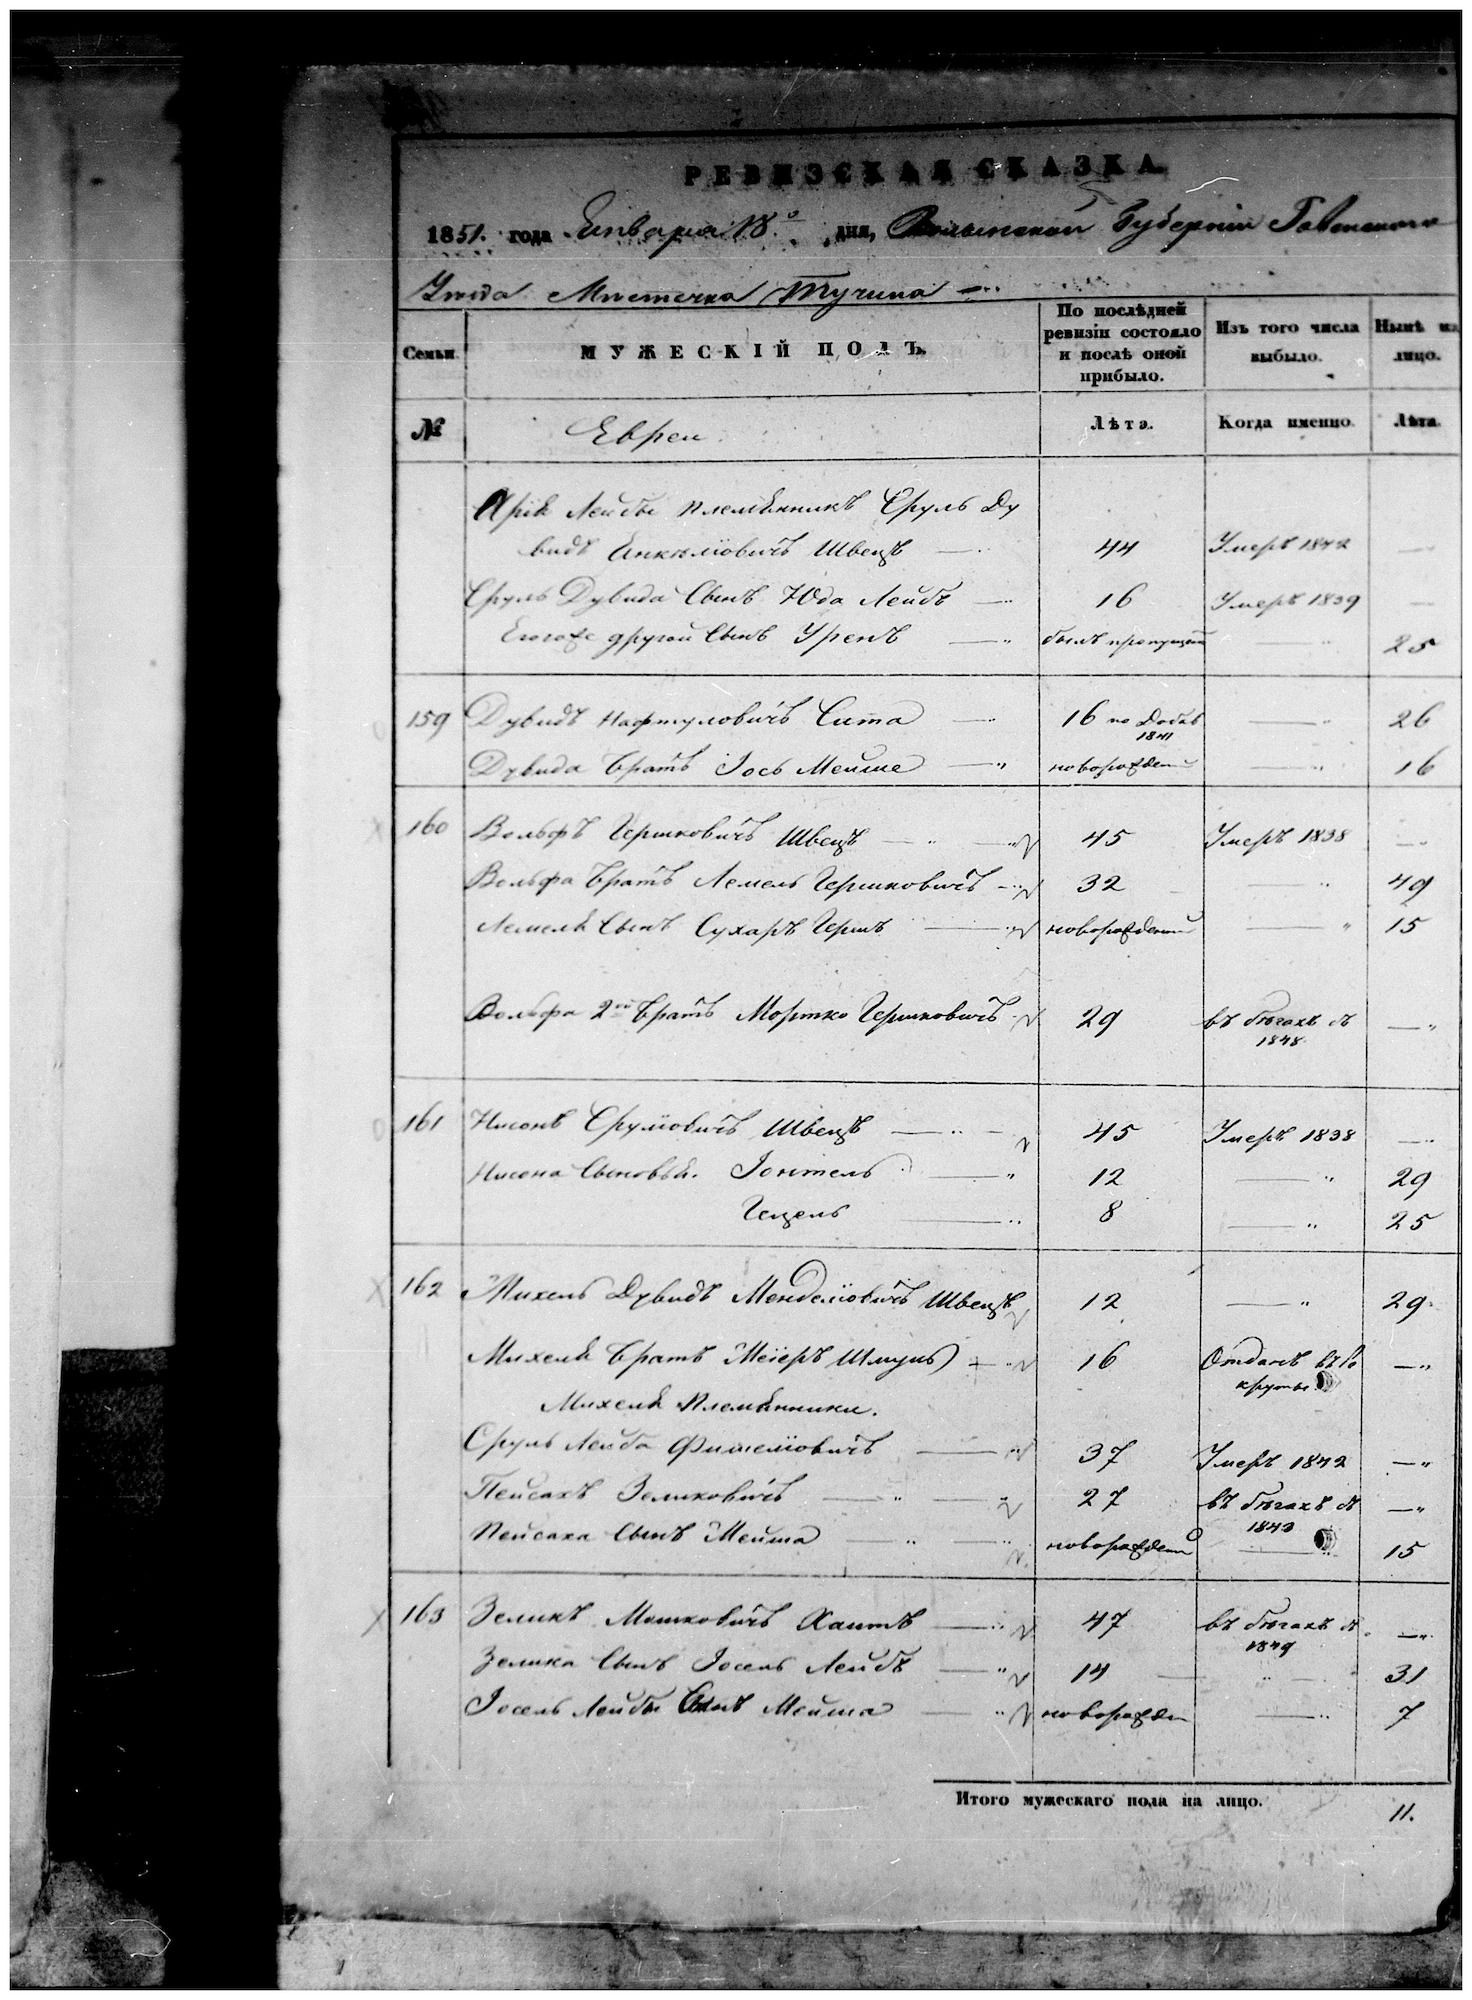 РЕВИЗСКАЯ СКАЗКА.
1851. года Января 18.º дня, Волынской Губерніи Ровенского
Уезда Местечка Тучина
Семьи. МУЖЕСКІЙ ПОЛЪ. По послѣдней ревизіи состояло и послѣ оной прибыло. Изъ того числа выбыло. Нынѣ на лицо.
№ Евреи Лѣта. Когда именно. Лѣта.
Арiя Лейбы племянникъ Сруль Ду
видъ Янкелiовичъ Швецъ 44 Умеръ 1842
Сруль Дувида Сынъ Юда Лейбъ 16 Умеръ 1839
Егоже другой Сынъ Уренъ былъ пропущенъ 25
159 Дувидъ Нафтуловичъ Сита 16 по Добав 1841 26
Дувида Братъ Іось Мейше новорожден 16
160 Вольфъ Гершковичъ Швецъ 45 Умеръ 1838
Вольфа Братъ Лемель Гершковичъ 32 49
Лемеля Сынъ Сухаръ Гершъ новорожденный 15
Вольфа 2ой Братъ Мортко Гершковичъ 29 въ бѣгахъ съ 1848
161 Нисонъ Срулiовичъ Швецъ 45 Умеръ 1838
Нисона Сыновья. Іонтель 12 29
Гецель 8 25
162 Михель Дувидъ Менделiовичъ Швецъ 12 29
Михеля Братъ Меiеръ Шмуль 16 Отданъ въ Ре
круты
Михеля племянники.
Сруль Лейба Фишелiовичъ 37 Умеръ 1842
Пейсахъ Зельковичъ 27 въ бѣгахъ съ
1843
Пейсаха Сынъ Мейша новорожденный 15
163 Зеликъ Мошковичъ Хаитъ 47 въ бѣгахъ съ
1849
Зелика Сынъ Іосель Лейбъ 14 31
Іосель Лейбы Сынъ Мейша новорожден 7
Итого мужескаго пола на лицо. 11.